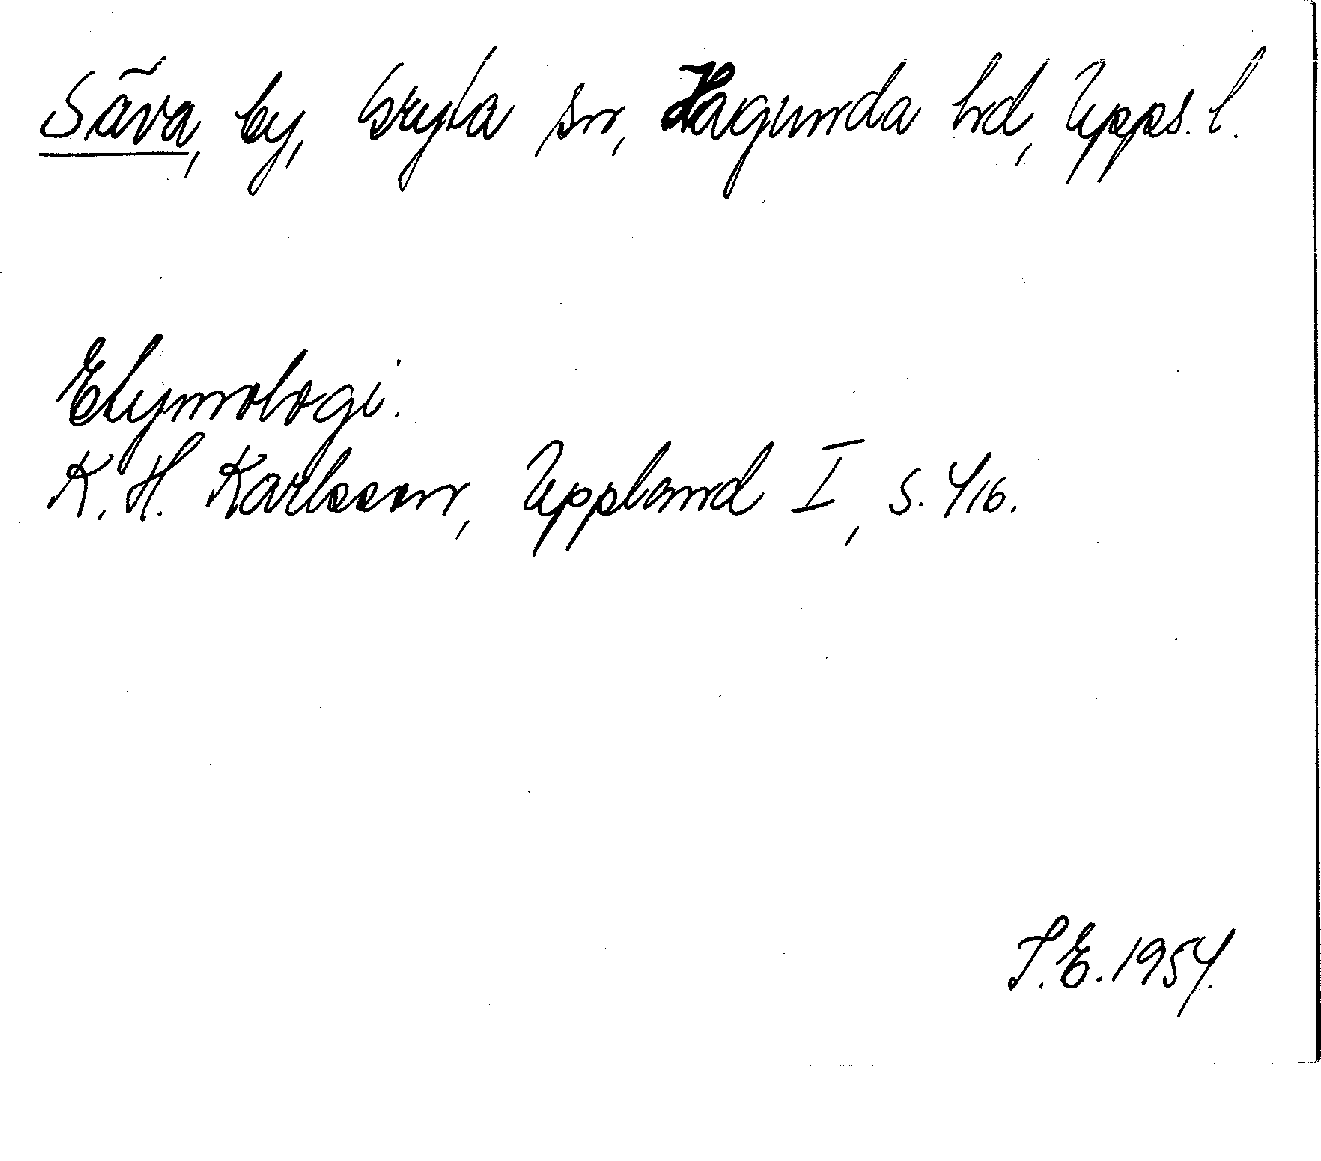 Säva, by, Gryta sn, Hagunda hd, Upps. l.
Etymologi.
K. H. Karlsson, Uppland I, s. 416.
S. E. 1954.